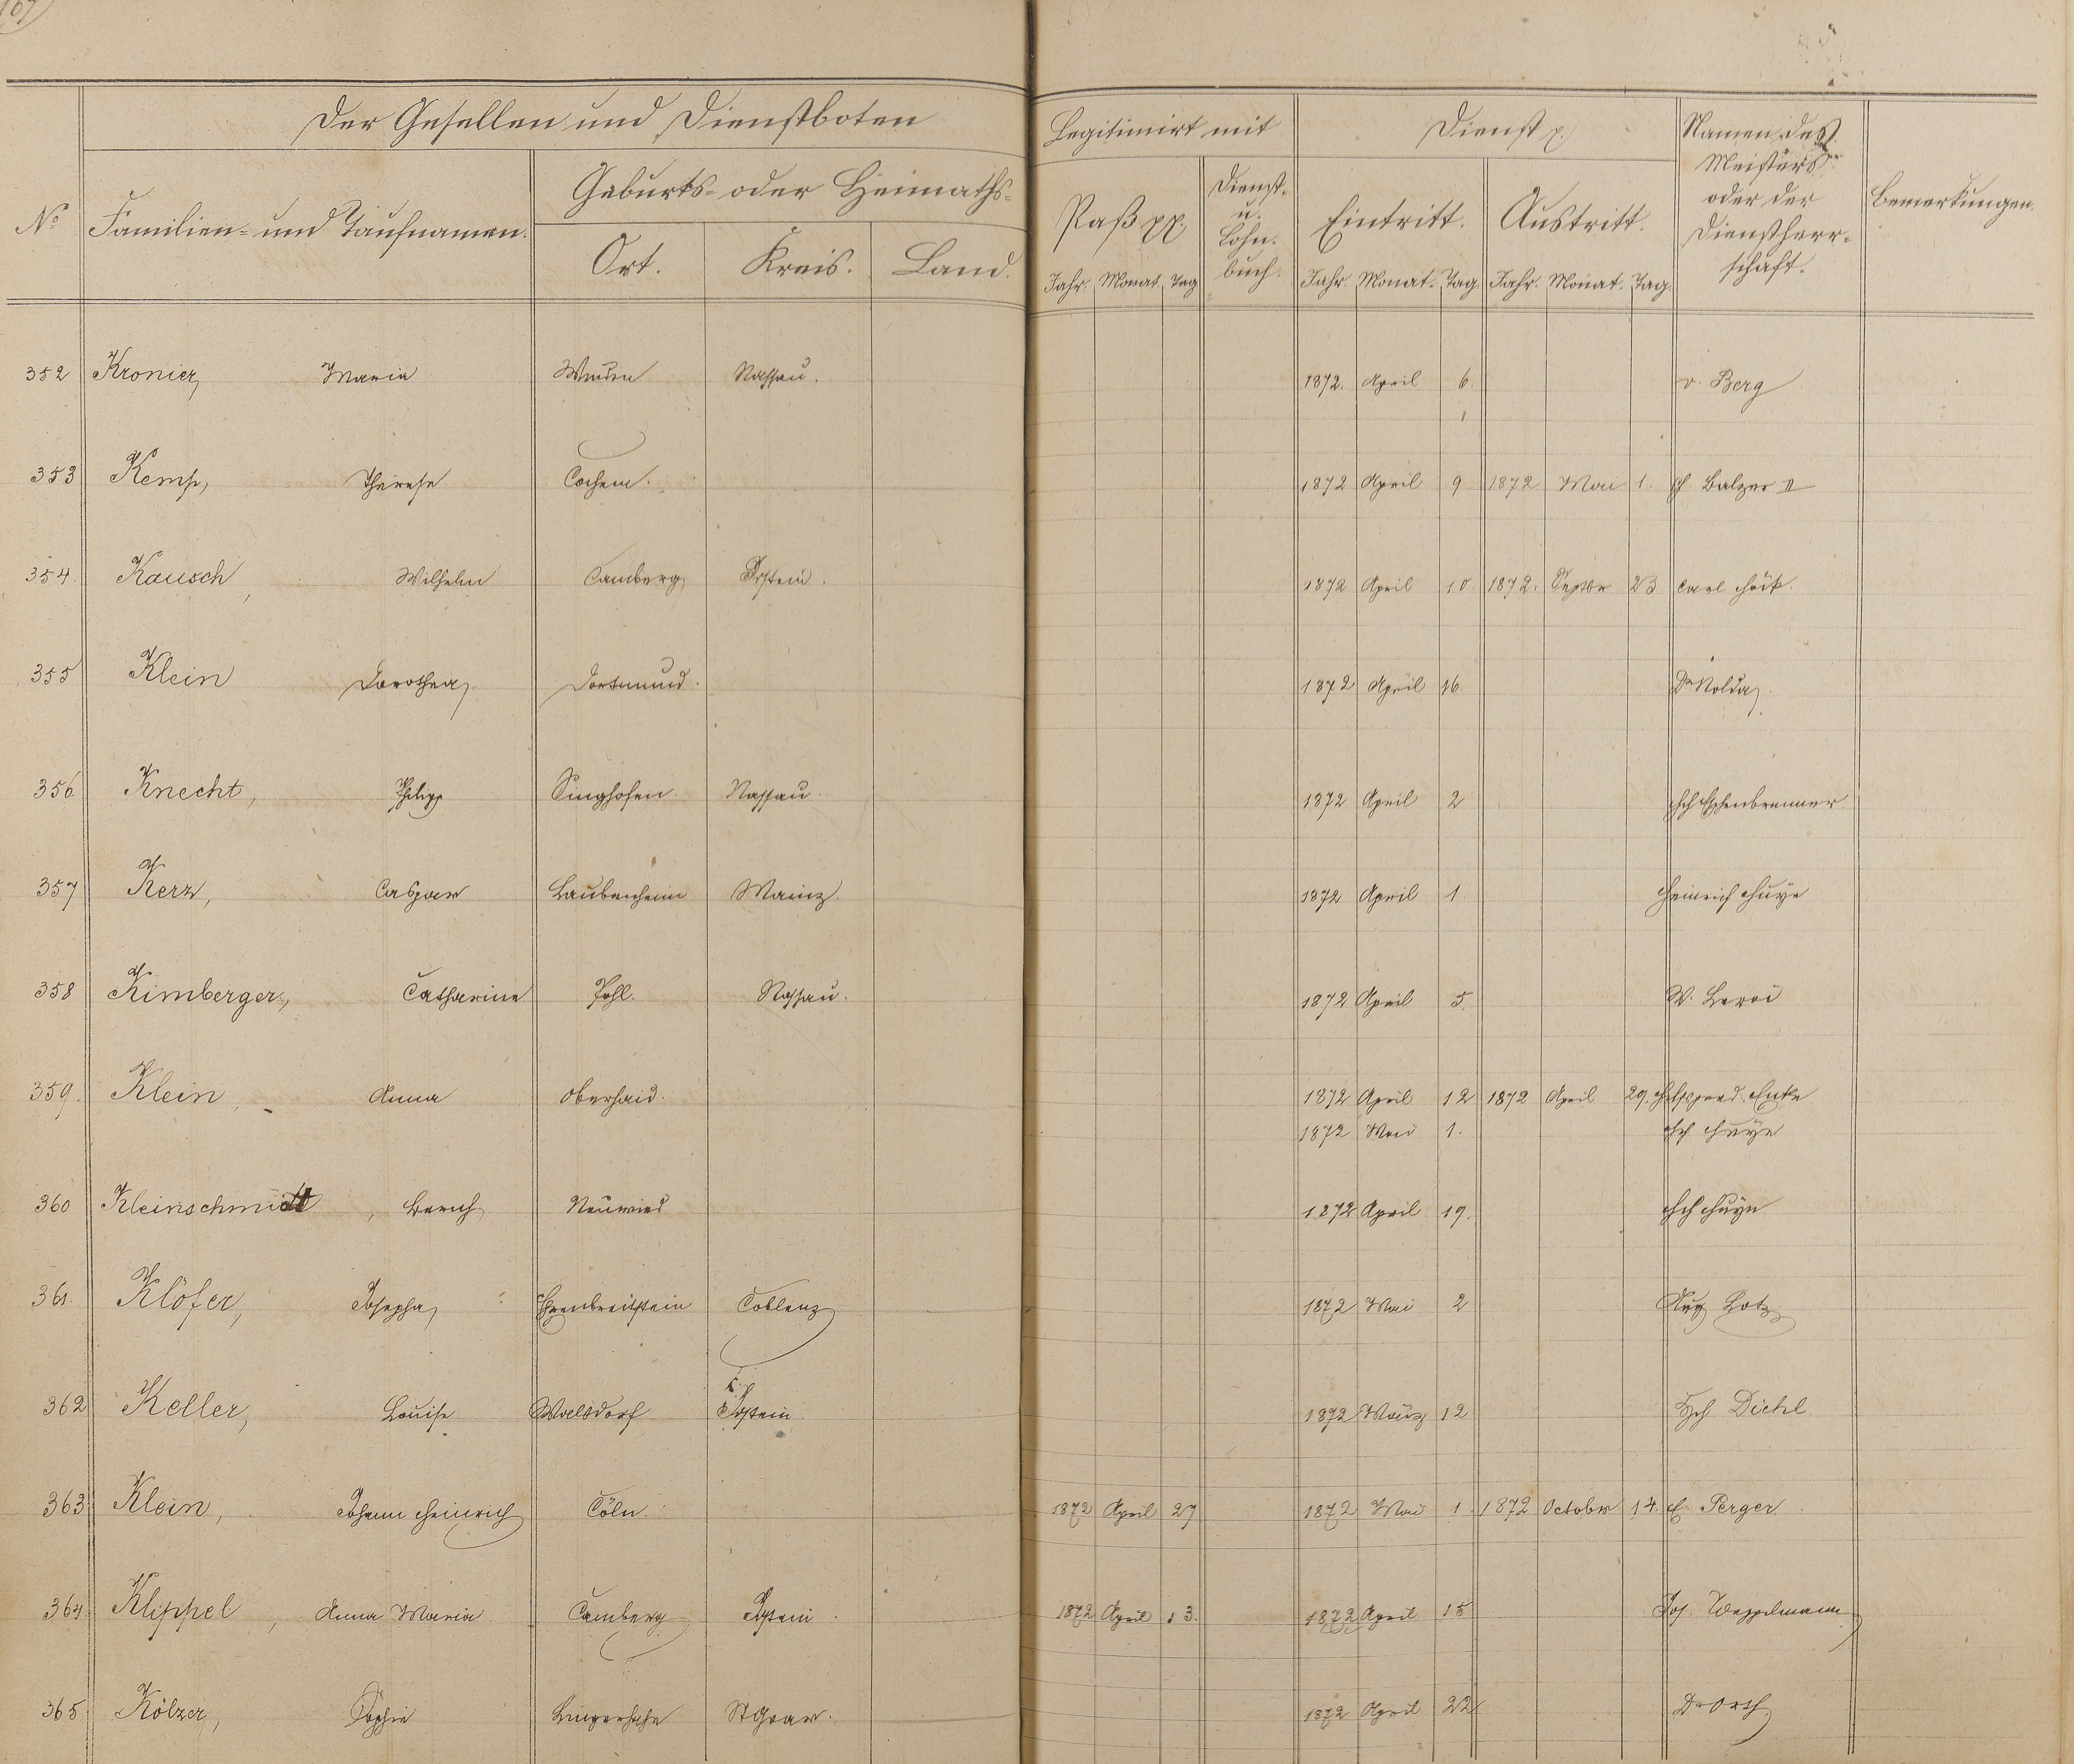 Der Gesellen und Dienstboten
Legitimirt mit
Dienst p.
Namen des Meisters oder der Dienstherrschaft.
Bemerkungen.
No
Familien- und Taufnamen.
Geburts- oder Heimaths-
Ort. Kreis. Land.
Paß pp.
Dienst- u. Lohn- buch.
Eintritt. Austritt.
Jahr. Monat. Tag Jahr. Monat. Tag Jahr. Monat. Tag.
352 Kronier, Maria Nassau. 1872. April 6. v. Berg
1
353 Kemp, Therese Cochem. 1872 April 9 1872 Mai 1. Balzer II
354 Kausch, Wilhelm Camberg Idstein. 1872 April 10. 1872. Septbr 23 Carl
355 Klein Dorothea Dortmund. 1872 April 16. Dr
356 Knecht, Philipp Singhofen. Nassau. 1872 April 2 Hch Eschenbrenner.
357 Kerz, Caspar Laubenheim Mainz. 1872 April 1 Heinrich Huye
358 Kimberger, Catharine Pohl. Nassau. 1872 April 5. W. Leroi
359. Klein, Anna Oberhaid. 1872 April 12 1872 April 29.
1872 Mai 1. Hch Huye
360 Kleinschmidt, Neuwied 1872 April 19. Hch Huye
361. Klöfer, Josepha Ehrenbreitstein Coblenz 1872 Mai 2 Aug Lotz
362 Keller, Louise Walsdorf Idstein. 1872 März 12 Diehl.
363 Klein, Johann Heinrich Cöln. 1872 April 27 1872 Mai 1. 1872 Octobr 14. Perger.
364. Klippel, Anna Maria. Camberg Idstein. 1872 April 13. 1872 April 15 Jos.
365 Kölzer, Sophie Lingerhahn St Goar. 1872 April 22 Dr Orth